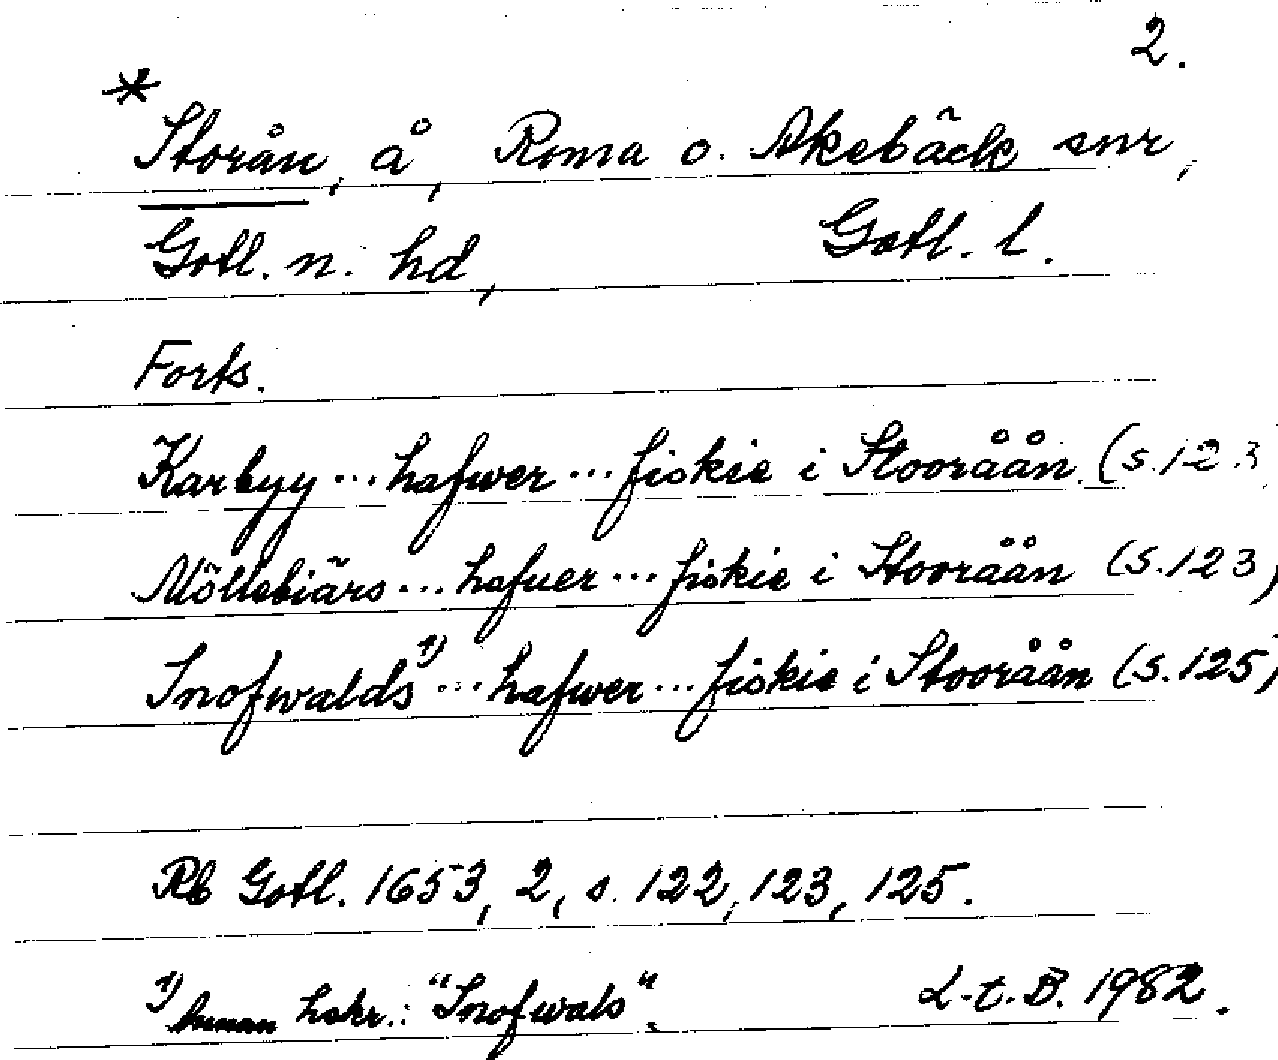 2.
*
Storån, å, Roma o. Akebäck snr,
Gotl. n. hd, Gotl. l.
Forts.
Karbyy ... hafwer ... fiskie i Stooråån (s. 123
Möllebiärs ... hafuer ... fiskie i Stooråån (s. 123)
Snofwalds 1) ... hafwer ... fiskie i Stooråån (s. 125)
Rb Gotl. 1653, 2, s. 122, 123, 125.
1) annan hskr.: "Snofwals". L-t. B. 1982.